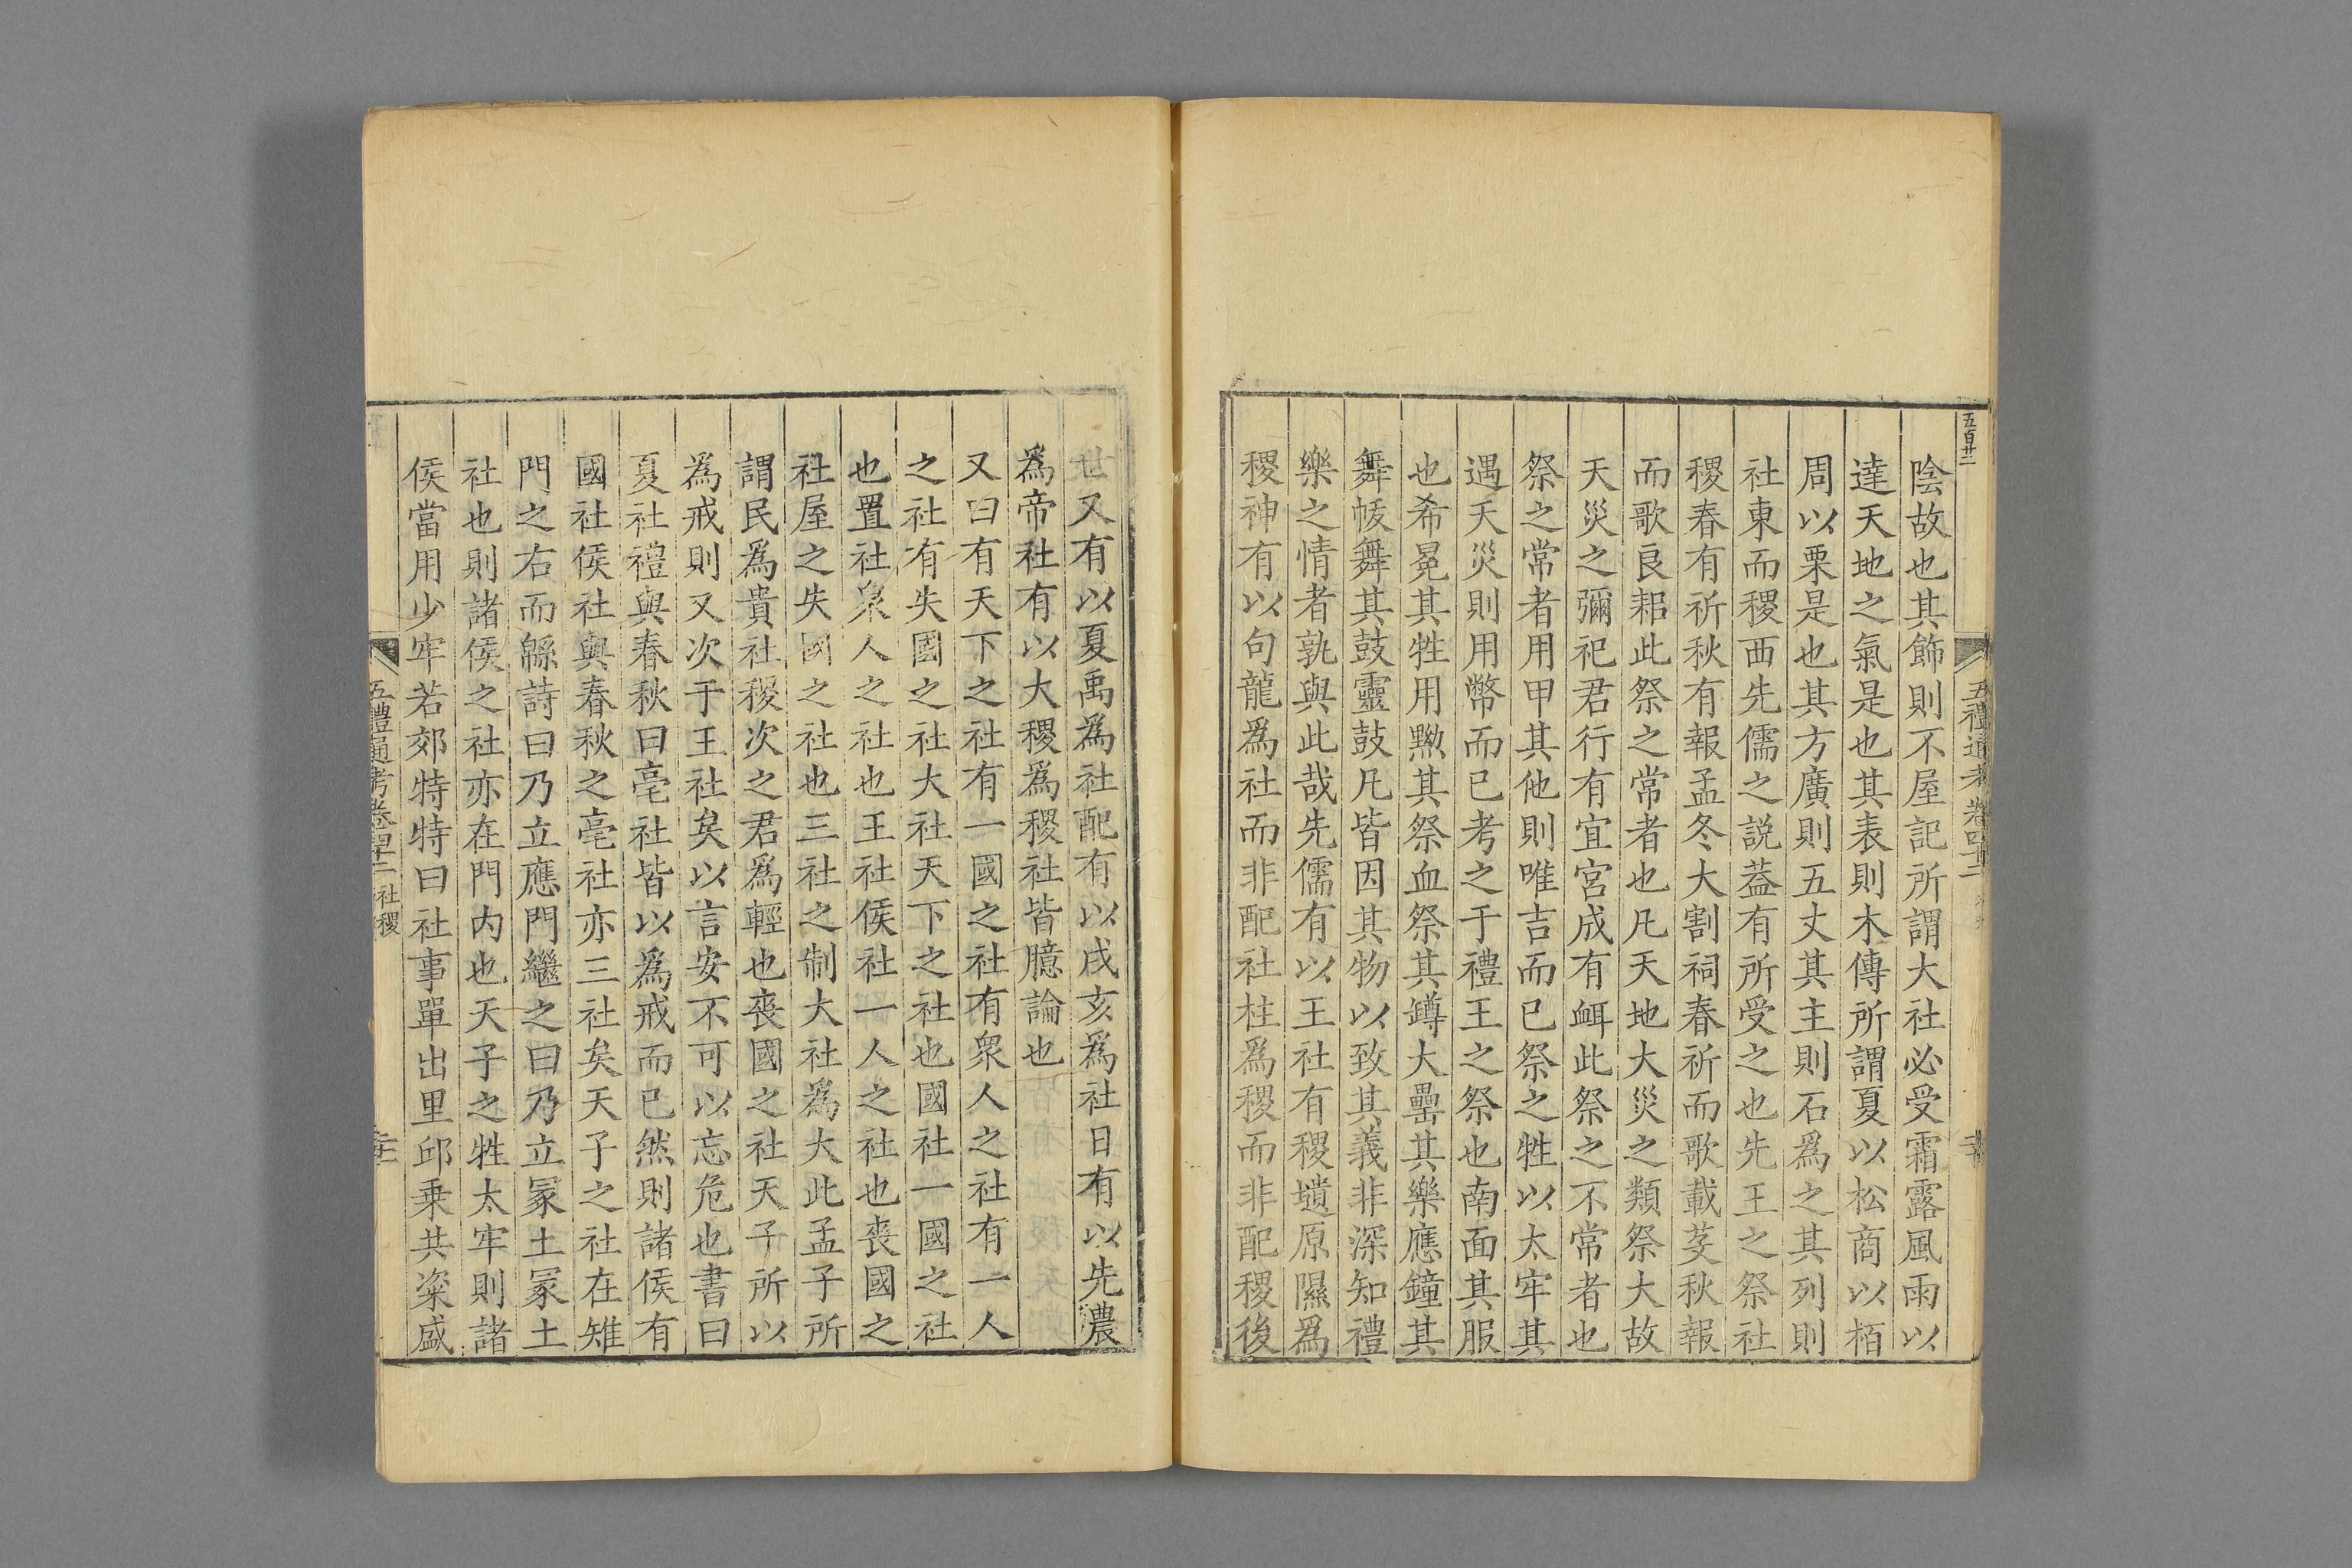 五百廿二
陰故也其飾則不屋記所謂大社必受霜露風雨以
達天地之氣是也其表則木傳所謂夏以松商以栢
周以栗是也其方廣則五丈其主則石爲之其列則
社東而稷西先儒之說葢有所受之也先王之祭社
稷春有祈秋有報孟冬大割祠春祈而歌載芟秋報
而歌良耜此祭之常者也凡天地大烖之類祭大故
天災之彌祀君行有宜宮成有衈此祭之不常者也
祭之常者用甲其他則唯吉而已祭之牲以太牢其
遇天災則用幣而已考之于禮王之祭也南面其服
也希冕其牲用黝其祭血祭其罇大罍其樂應鐘其
舞帗舞其鼓靈鼓凡皆因其物以致其義非深知禮
樂之情者孰與此哉先儒有以王社有稷壝原隰爲
稷神有以句龍爲社而非配社柱爲稷而非配稷後
世又有以夏禹爲社配有以戌亥爲社日有以先農
爲帝社有以大稷爲稷社皆臆論也
又曰有天下之社有一國之社有衆人之社有一人
之社有失國之社大社天下之社也國社一國之社
也置社衆人之社也王社侯社一人之社也喪國之
社屋之失國之社也三社之制大社爲大此孟子所
謂民爲貴社稷次之君爲輕也喪國之社天子所以
爲戒則又次于王社矣以言安不可以忘危也書曰
夏社禮與春秋曰亳社皆以爲戒而已然則諸侯有
國社侯社與春秋之亳社亦三社矣天子之社在雉
門之右而緜詩曰乃立應門繼之曰乃立冢土冢土
社也則諸侯之社亦在門內也天子之牲太牢則諸
侯當用少牢若郊特特曰社事單出里邱乗共粢盛
五禮通考卷四十二 社稷